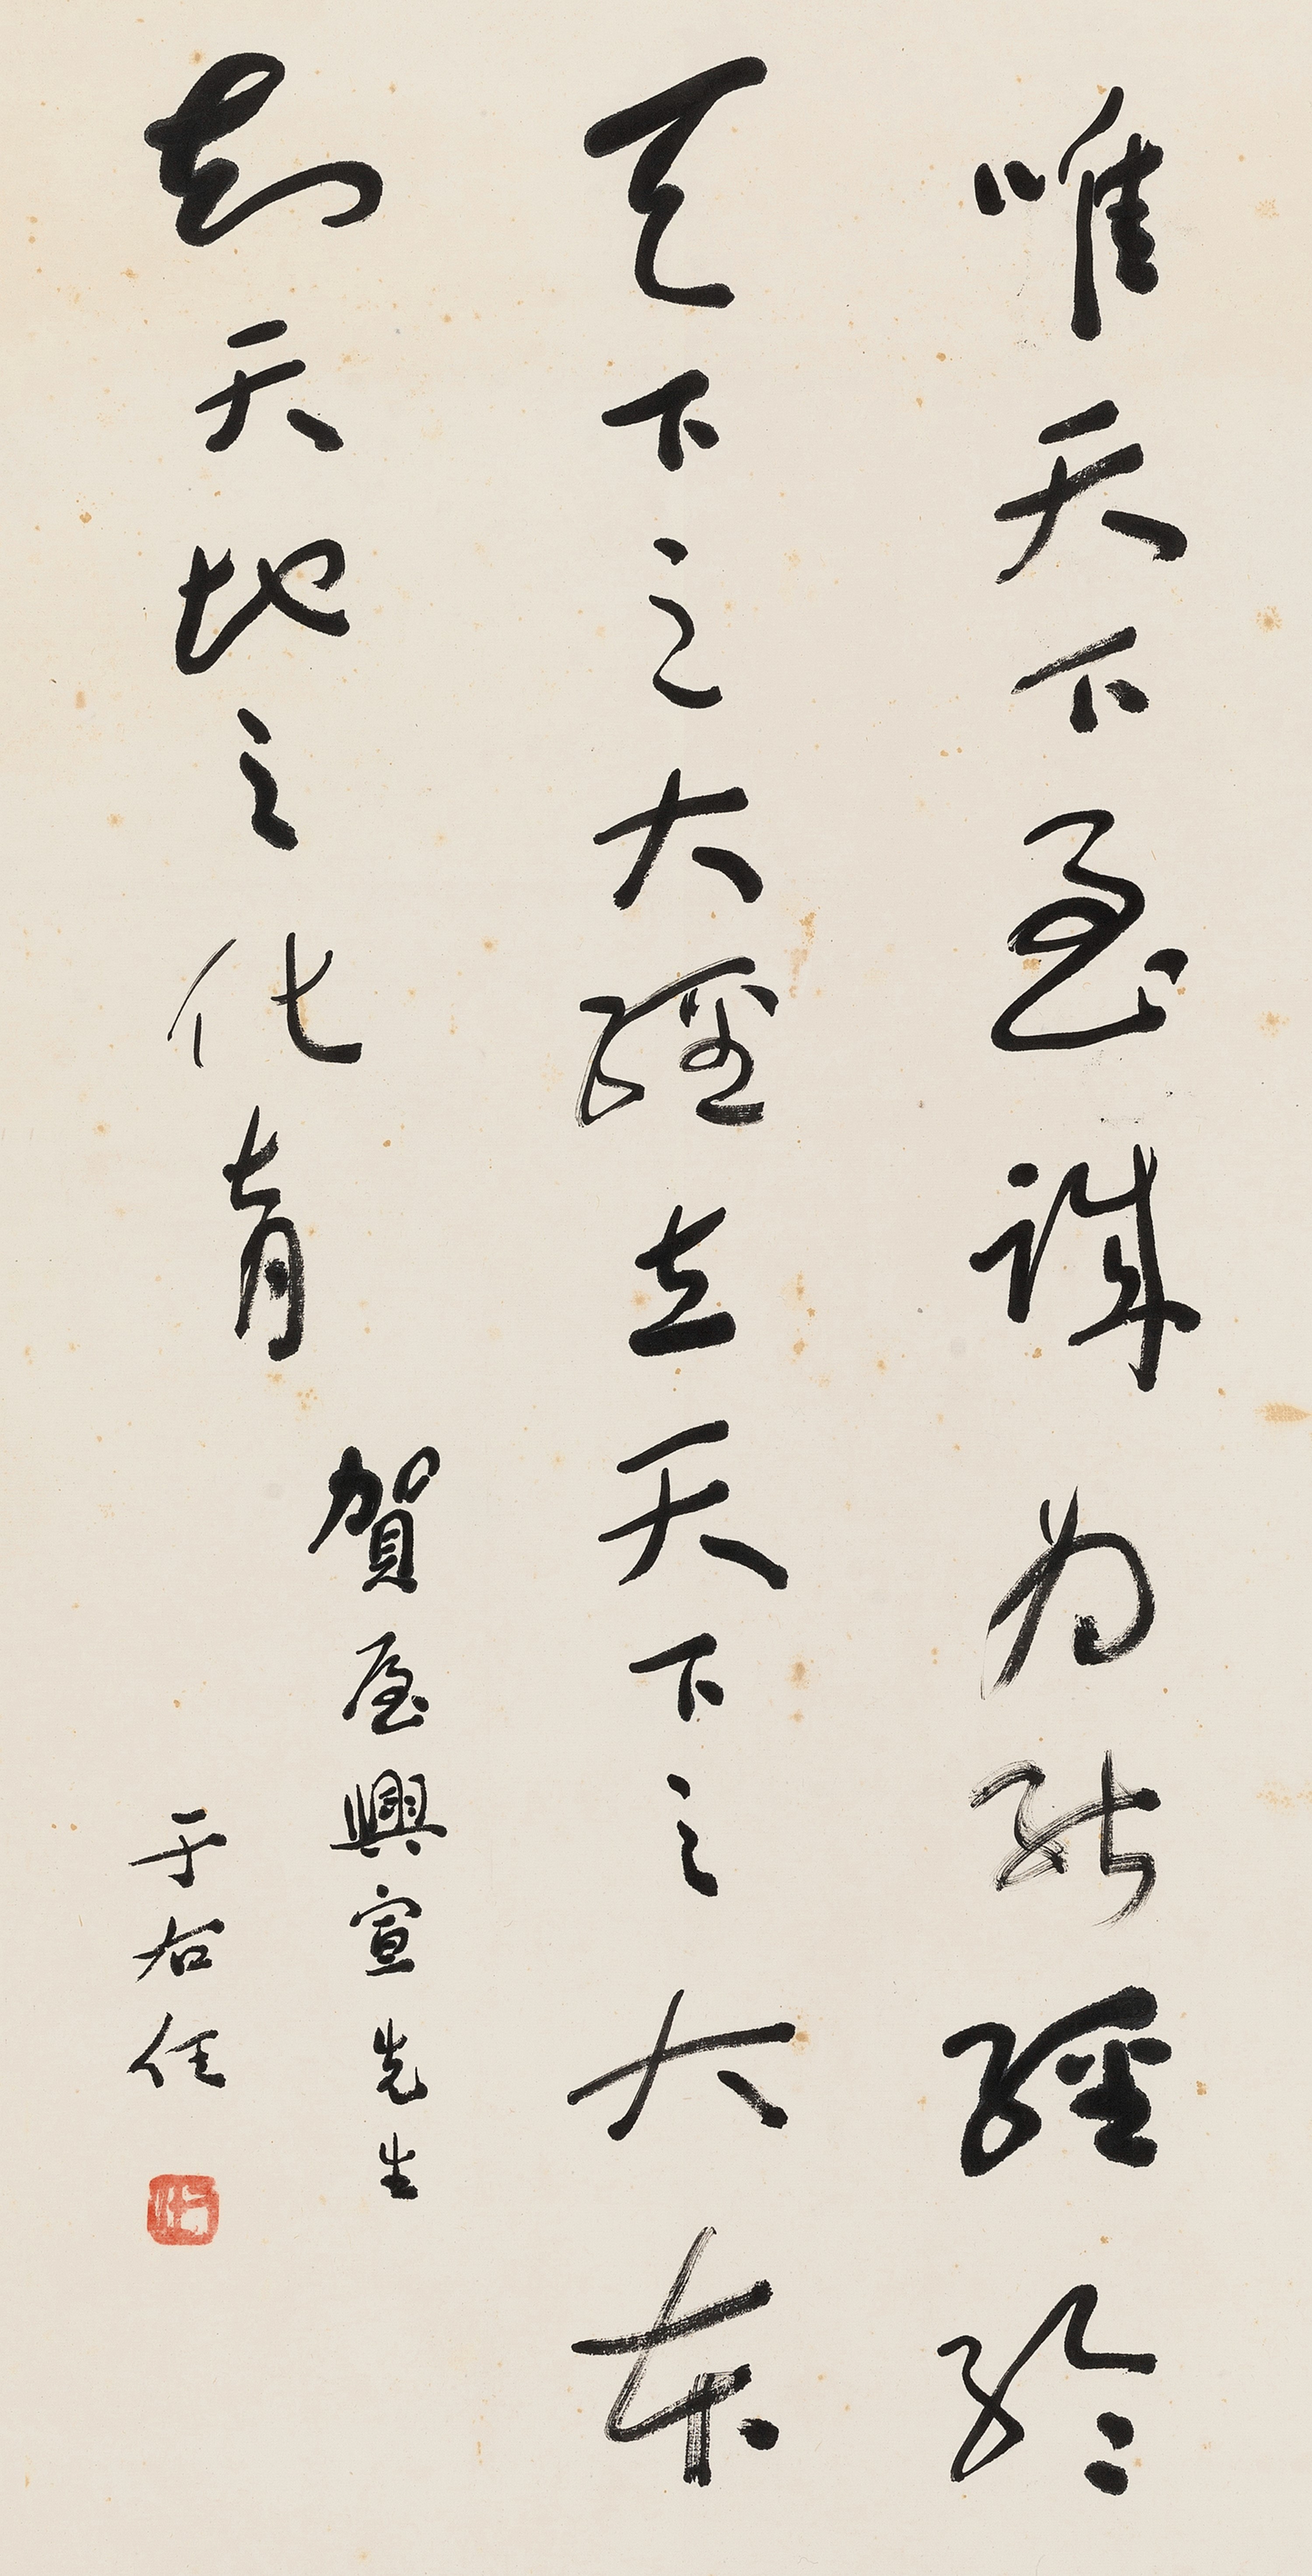 唯天下至誠為能經綸
天下之大經立天下之大本
知天地之化育
賀屋興宣先生
于右任